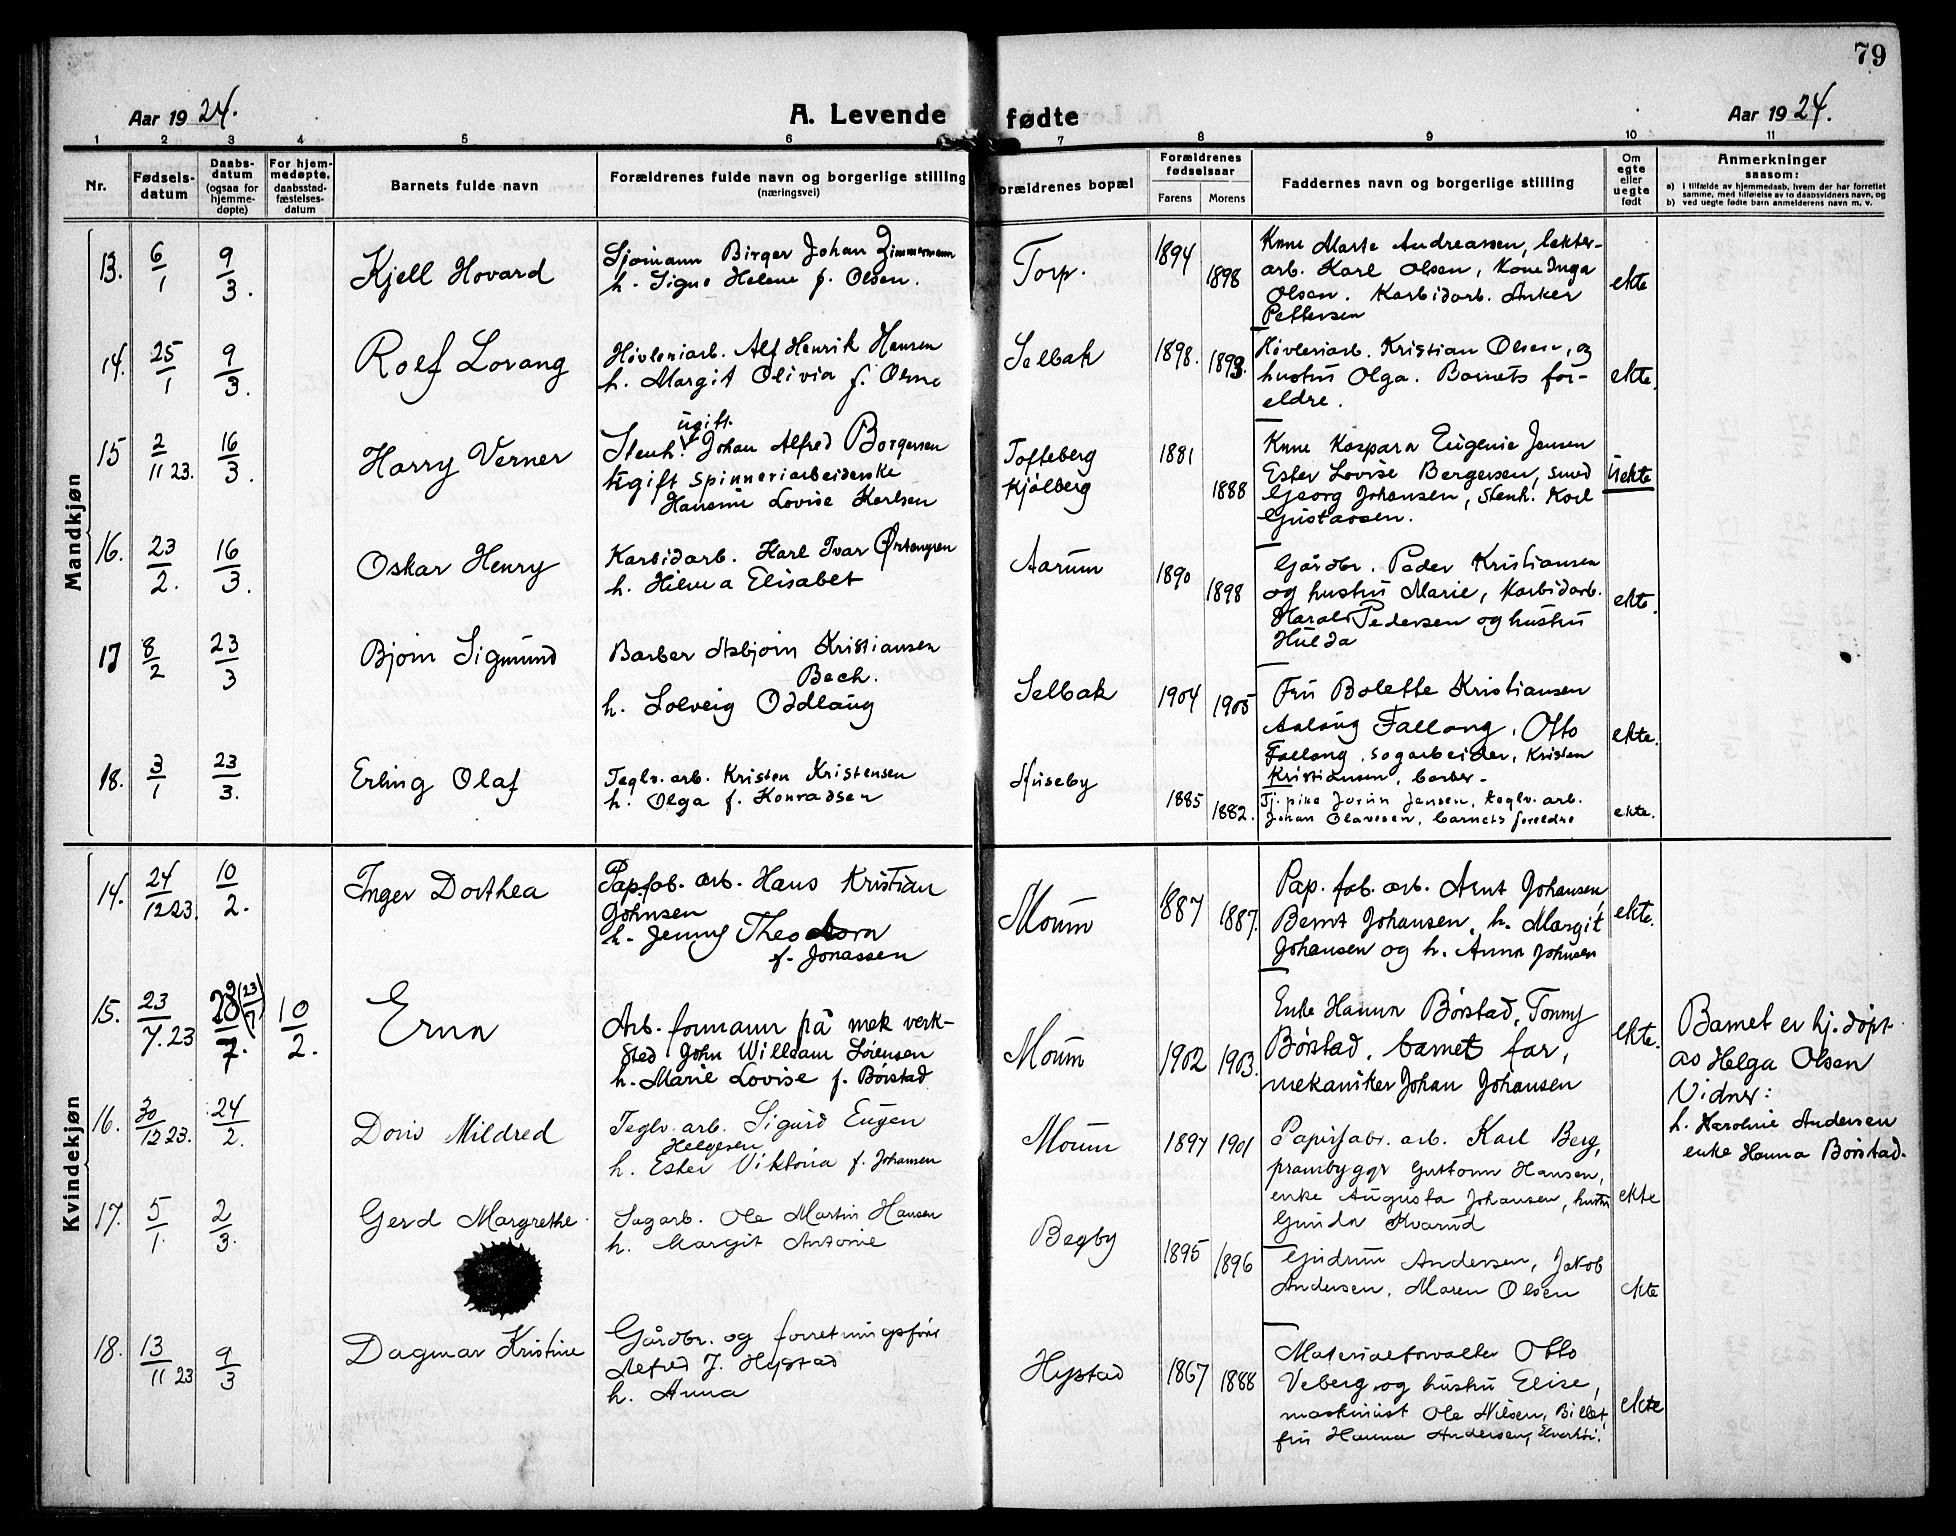 79
Aar 1924.
A. Levende fødte
Aar 1924.
1 2 3 4 5 6 7 8 9 10 11
Nr.
Fødselsdatum
Daabsdatum (ogsaa for hjemmedøpte)
For hjemmedøpte, daabsstadfæstelsesdatum
Barnets fulde navn
Forældrenes fulde navn og borgerlige stilling (næringsvei)
Forældrenes bopæl
Forældrenes fødselsaar
Farens Morens
Faddernes navn og borgerlige stilling
Om egte eller uegte født
Anmerkninger saasom:
a) i tilfælde av hjemmedaab, hvem der har forrettet samme, med tilføielse av to daabsvidners navn, og
b) ved uegte fødte barn anmelderens navn m. v.
Mandkjøn
13. 6/1 9/3. Kjell Hovard
Sjømann Birger Johan Zimmermann
h. Signe Helene f. Olsen.
Torp. 1894 1898
Kone Marte Andreassen, lekter-
arb. Karl Olsen, Kone Inga
Olsen. Karbidarb. Anker
Pettersen
ekte
14. 25/1 9/3. Rolf Lorang
Høvleriarb. Alf Henrik Hansen
h. Margit Olivia f. Olsne
Selbak 1898. 1893.
Høvleriarb. Kristian Olsen, og
hustru Olga. Barnets for-
eldre.
ekte.
15 2/11 23. 16/3. Harry Verner
ugift.
Stenh. Johan Alfred Borgersen
Ugift spinneriarbeiderske
Hansine Lovise Karlsen
Tofteberg
Kjølberg
1881 1888
Kone Kaspara Eugenie Jensen
Ester Lovise Bergersen, smed
Georg Johansen, stenh. Karl
Gustavsen.
uekte
16. 23/2. 16/3. Oskar Henry
Karbidarb. Karl Ivar Ørtengren
h. Hilma Elisabet
Aarum 1890 1898
Gårdbr. Peder Kristiansen
og hustru Marie, Karbidarb.
Harald Pedersen og hustru
Hulda
ekte.
17 8/2 23/3 Bjørn Sigmund
Barber Asbjørn Kristiansen
Bech.
h. Solveig Oddlaug
Selbak 1904 1905
Fru Bolette Kristiansen
Aslaug Fallang, Otto
Fallang, sagarbeider, Kristen
Kristiansen, barber-
ekte.
18. 3/1 23/3. Erling Olaf
Teglv. arb. Kristen Kristensen
h. Olga f. Konradsen
Huseby 1885 1882.
Tj. pike Jorun Jensen, teglv. arb.
Johan Olavesen, barnets foreldre
ekte.
Kvindekjøn
14. 24/12 23. 10/2. Inger Dorthea
Pap.fab. arb. Hans Kristian
Johnsen
h. Jenny Theodora
f. Jonassen
Moum 1887 1887.
Pap. fab. arb. Arnt Johansen,
Bernt Johansen, h. Margit
Johansen og h. Anna Johnsen
ekte.
15. 23/7. 23 29/7. (23/7) 10/2. Erna
Arb. formann på mek verk-
sted John William Sørensen
h. Marie Lovise f. Børstad
Moum 1902 1903.
Enke Hanna Børstad, Tommy
Børstad, barnet far,
mekaniker Johan Johansen
ekte.
Barnet er hj. døpt
av Helga Olsen
Vidner:
h. Karoline Andersen
enke Hanna Børstad.
16. 30/12 23. 24/2. Doris Mildred
Teglv. arb. Sigurd Eugen
Helgesen
h. Ester Viktoria f. Johansen
Moum 1897 1901
Papirfabr. arb. Karl Berg,
prambyggr Guttorm Hansen,
enke Augusta Johansen, hustru
Gunda Kvarud
ekte
17. 5/1. 2/3. Gerd Margrethe.
Sagarb. Ole Martin Hansen
h. Margit Antonie
Begby 1895 1896
Gudrun Andersen, Jakob
Andersen, Maren Olsen
ekte
18. 13/11 23 9/3 Dagmar Kristine
Gårdbr. og forretningsfører
Alfred J. Hystad
h. Anna
Hystad 1867 1888
Materialforvalter Otto
Veberg og hustru Elise,
maskinist Ole Nilsen, Billet,
fru Hanna Andersen, Elverhøi.
ekte